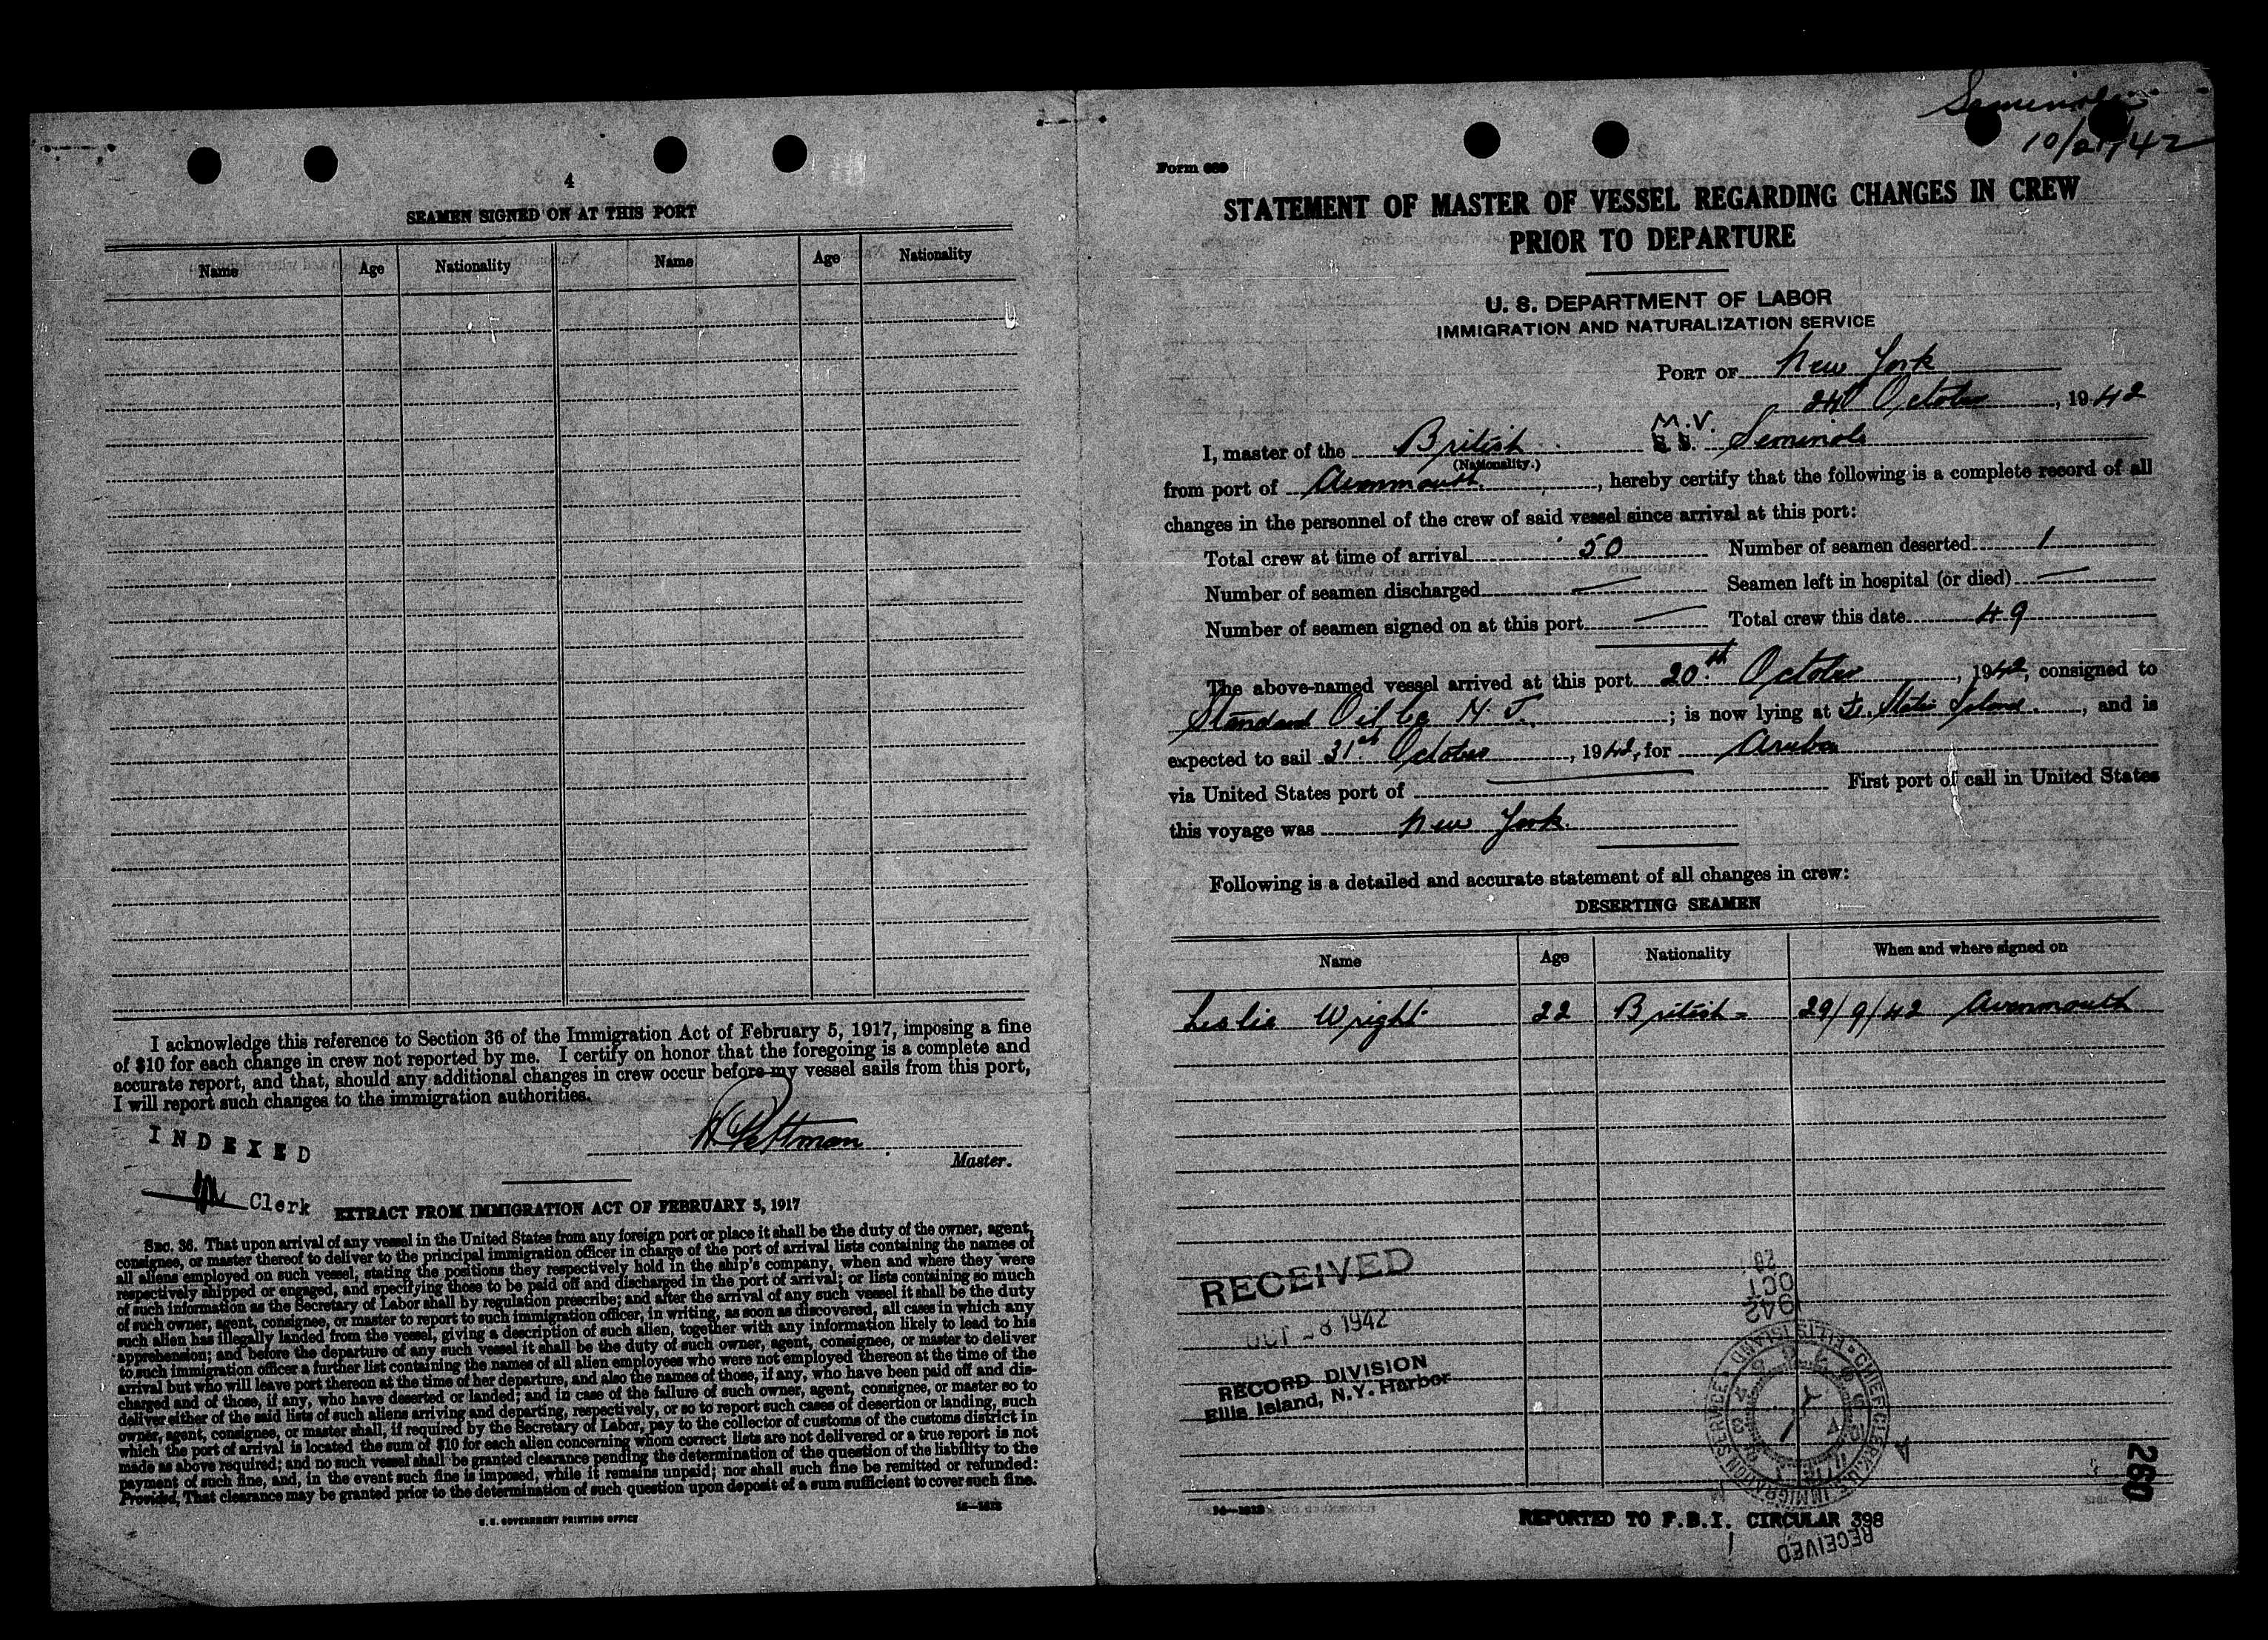 4
SEAMEN SIGNED ON AT THIS PORT
Name Age Nationality Name Age Nationality
I acknowledge this reference to Section 36 of the Immigration Act of February 5, 1917, imposing a fine
of $10 for each change in crew not reported by me. I certify on honor that the foregoing is a complete and
accurate report, and that, should any additional changes in crew occur before my vessel sails from this port,
I will report such changes to the immigration authorities.
INDEXED
Pettman
Master.
Clerk
EXTRACT FROM IMMIGRATION ACT OF FEBRUARY 5, 1917
SEC. 36. That upon arrival of any vessel in the United States from any foreign port or place it shall be the duty of the owner, agent,
consignee, or master thereof to deliver to the principal immigration officer in charge of the port of arrival lists containing the names of
all aliens employed on such vessel, stating the positions they respectively hold in the ship's company, when and where they were
respectively shipped or engaged, and specifying those to be paid off and discharged in the port of arrival; or lists containing so much
of such information as the Secretary of Labor shall by regulation prescribe; and after the arrival of any such vessel it shall be the duty
of such owner, agent, consignee, or master to report to such immigration officer, in writing, as soon as discovered, all cases in which any
such alien has illegally landed from the vessel, giving a description of such alien, together with any information likely to lead to his
apprehension; and before the departure of any such vessel it shall be the duty of such owner, agent, consignee, or master to deliver
to such immigration officer a further list containing the names of all alien employees who were not employed thereon at the time of the
arrival but who will leave port thereon at the time of her departure, and also the names of those, if any, who have been paid off and dis-
charged and of those, if any, who have deserted or landed; and in case of the failure of such owner, agent, consignee, or master so to
deliver either of the said lists of such aliens arriving and departing, respectively, or so to report such cases of desertion or landing, such
owner, agent, consignee, or master shall, if required by the Secretary of Labor, pay to the collector of customs of the customs district in
which the port of arrival is located the sum of $10 for each alien concerning whom correct lists are not delivered or a true report is not
made as above required; and no such vessel shall be granted clearance pending the determination of the question of the liability to the
payment of such fine, and, in the event such fine is imposed, while it remains unpaid; nor shall such fine be remitted or refunded:
Provided, That clearance may be granted prior to the determination of such question upon deposit of a sum sufficient to cover such fine.
U. S. GOVERNMENT PRINTING OFFICE
Seminole
10/21/42
Form 689
STATEMENT OF MASTER OF VESSEL REGARDING CHANGES IN CREW
PRIOR TO DEPARTURE
U. S. DEPARTMENT OF LABOR
IMMIGRATION AND NATURALIZATION SERVICE
PORT OF New York
October, 1942
M.V.
I, master of the British S. S. Seminole
(Nationality.)
from port of Avonmouth, hereby certify that the following is a complete record of all
changes in the personnel of the crew of said vessel since arrival at this port:
Total crew at time of arrival 50 Number of seamen deserted 1
Number of seamen discharged — Seamen left in hospital (or died) —
Number of seamen signed on at this port — Total crew this date 49
The above-named vessel arrived at this port 20th October, 1942, consigned to
Standard Oil Co N. J.; is now lying at Island, and is
expected to sail 31st October, 1942, for Aruba
via United States port of — First port of call in United States
this voyage was New York
Following is a detailed and accurate statement of all changes in crew:
DESERTING SEAMEN
Name Age Nationality When and where signed on
Leslie Wright 22 British 29/9/42 Avonmouth
RECEIVED
OCT 28 1942
RECORD DIVISION
Ellis Island, N.Y. Harbor
OCT
260
REPORTED TO F.B.I. CIRCULAR 398
RECEIVED